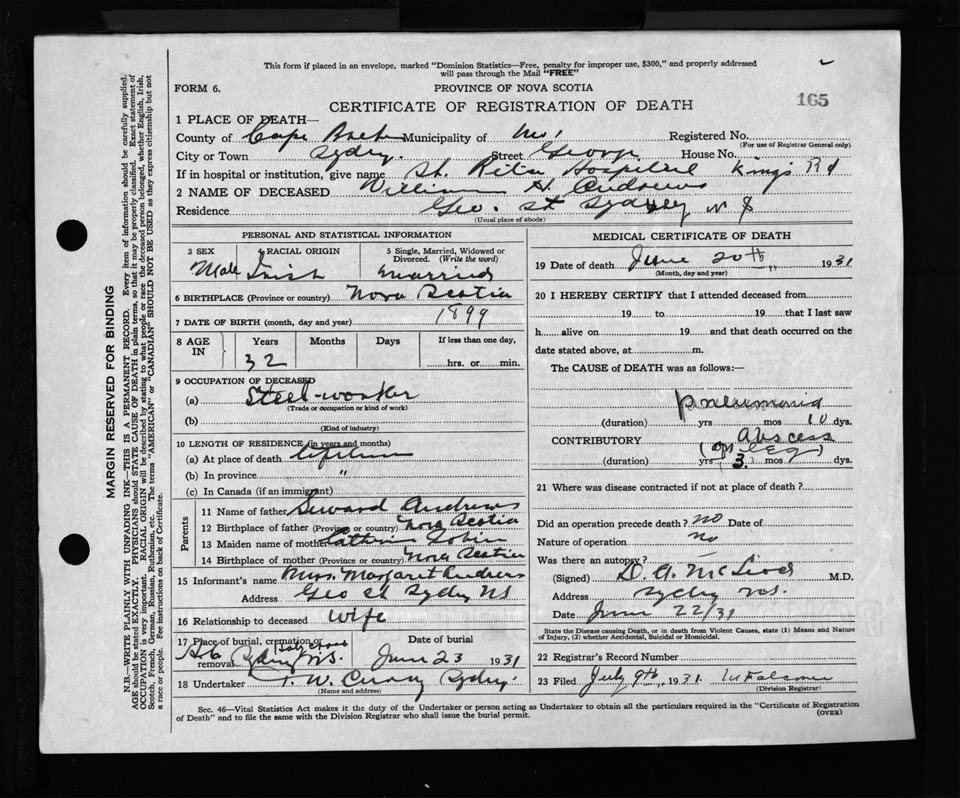 This form if placed in an envelope, marked "Dominion Statistics—Free, penalty for improper use, $300," and properly addressed
will pass through the Mail "FREE"
FORM 6.
PROVINCE OF NOVA SCOTIA
CERTIFICATE OF REGISTRATION OF DEATH
165
1 PLACE OF DEATH—
County of Cape Municipality of Registered No.
(For use of Registrar General only)
City or Town Sydney. Street George House No.
If in hospital or institution, give name St. Rita Hospital Kings Rd
2 NAME OF DECEASED William H. Andrews
Residence Geo. St Sydney N S
(Usual place of abode)
PERSONAL AND STATISTICAL INFORMATION
3 SEX
Male
4 RACIAL ORIGIN
Irish
5 Single, Married, Widowed or Divorced. (Write the word)
married
6 BIRTHPLACE (Province or country) Nova Scotia
7 DATE OF BIRTH (month, day and year) 1899
8 AGE IN
Years Months Days If less than one day,
32 hrs. or min.
9 OCCUPATION OF DECEASED
(a) Steel-worker
(Trade or occupation or kind of work)
(b)
(Kind of industry)
10 LENGTH OF RESIDENCE (in years and months)
(a) At place of death lifetime
(b) In province "
(c) In Canada (if an immigrant)
Parents
11 Name of father Andrews
12 Birthplace of father (Province or country) Nova Scotia
13 Maiden name of mother
14 Birthplace of mother (Province or country) Nova Scotia
15 Informant's name Mrs. Margaret Andrews
Address Geo St Sydney NS
16 Relationship to deceased wife
17 Place of burial, cremation or removal Sydney N.S.
Date of burial
June 23 1931
18 Undertaker T. W. Curry Sydney
(Name and address)
MEDICAL CERTIFICATE OF DEATH
19 Date of death June 20th 1931
(Month, day and year)
20 I HEREBY CERTIFY that I attended deceased from
19 to 19 that I last saw
h alive on 19 and that death occurred on
date stated above, at m.
The CAUSE of DEATH was as follows:—
pneumonia
(duration) yrs mos 10 dys.
CONTRIBUTORY abscess
(of leg)
(duration) yrs 3. mos dys.
21 Where was disease contracted if not at place of death?
Did an operation precede death? no Date of
Nature of operation no
Was there an autopsy?
(Signed) D. A. McLeod M.D.
Address Sydney N.S.
Date June 22/31
State the Disease causing Death, or in death from Violent Causes, state (1) Means and Nature
of Injury, (2) whether Accidental, Suicidal or Homicidal.
22 Registrar's Record Number
23 Filed July 9th, 1931
(Division Registrar)
Sec. 46—Vital Statistics Act makes it the duty of the Undertaker or person acting as Undertaker to obtain all the particulars required in the "Certificate of Registration
of Death" and to file the same with the Division Registrar who shall issue the burial permit.
(OVER)
MARGIN RESERVED FOR BINDING
N.B.—WRITE PLAINLY WITH UNFADING INK—THIS IS A PERMANENT RECORD. Every item of information should be carefully supplied.
AGE should be stated EXACTLY. PHYSICIANS should STATE CAUSE OF DEATH in plain terms, so that it may be properly classified. Exact statement of
OCCUPATION is very important. RACIAL ORIGIN will be described by stating to what people or race the deceased person belonged, whether English, Irish,
Scotch, French, German, Russian, Ruthenian, etc. The terms "AMERICAN" or "CANADIAN" SHOULD NOT BE USED as they express citizenship but not
a race or people. See instructions on back of Certificate.